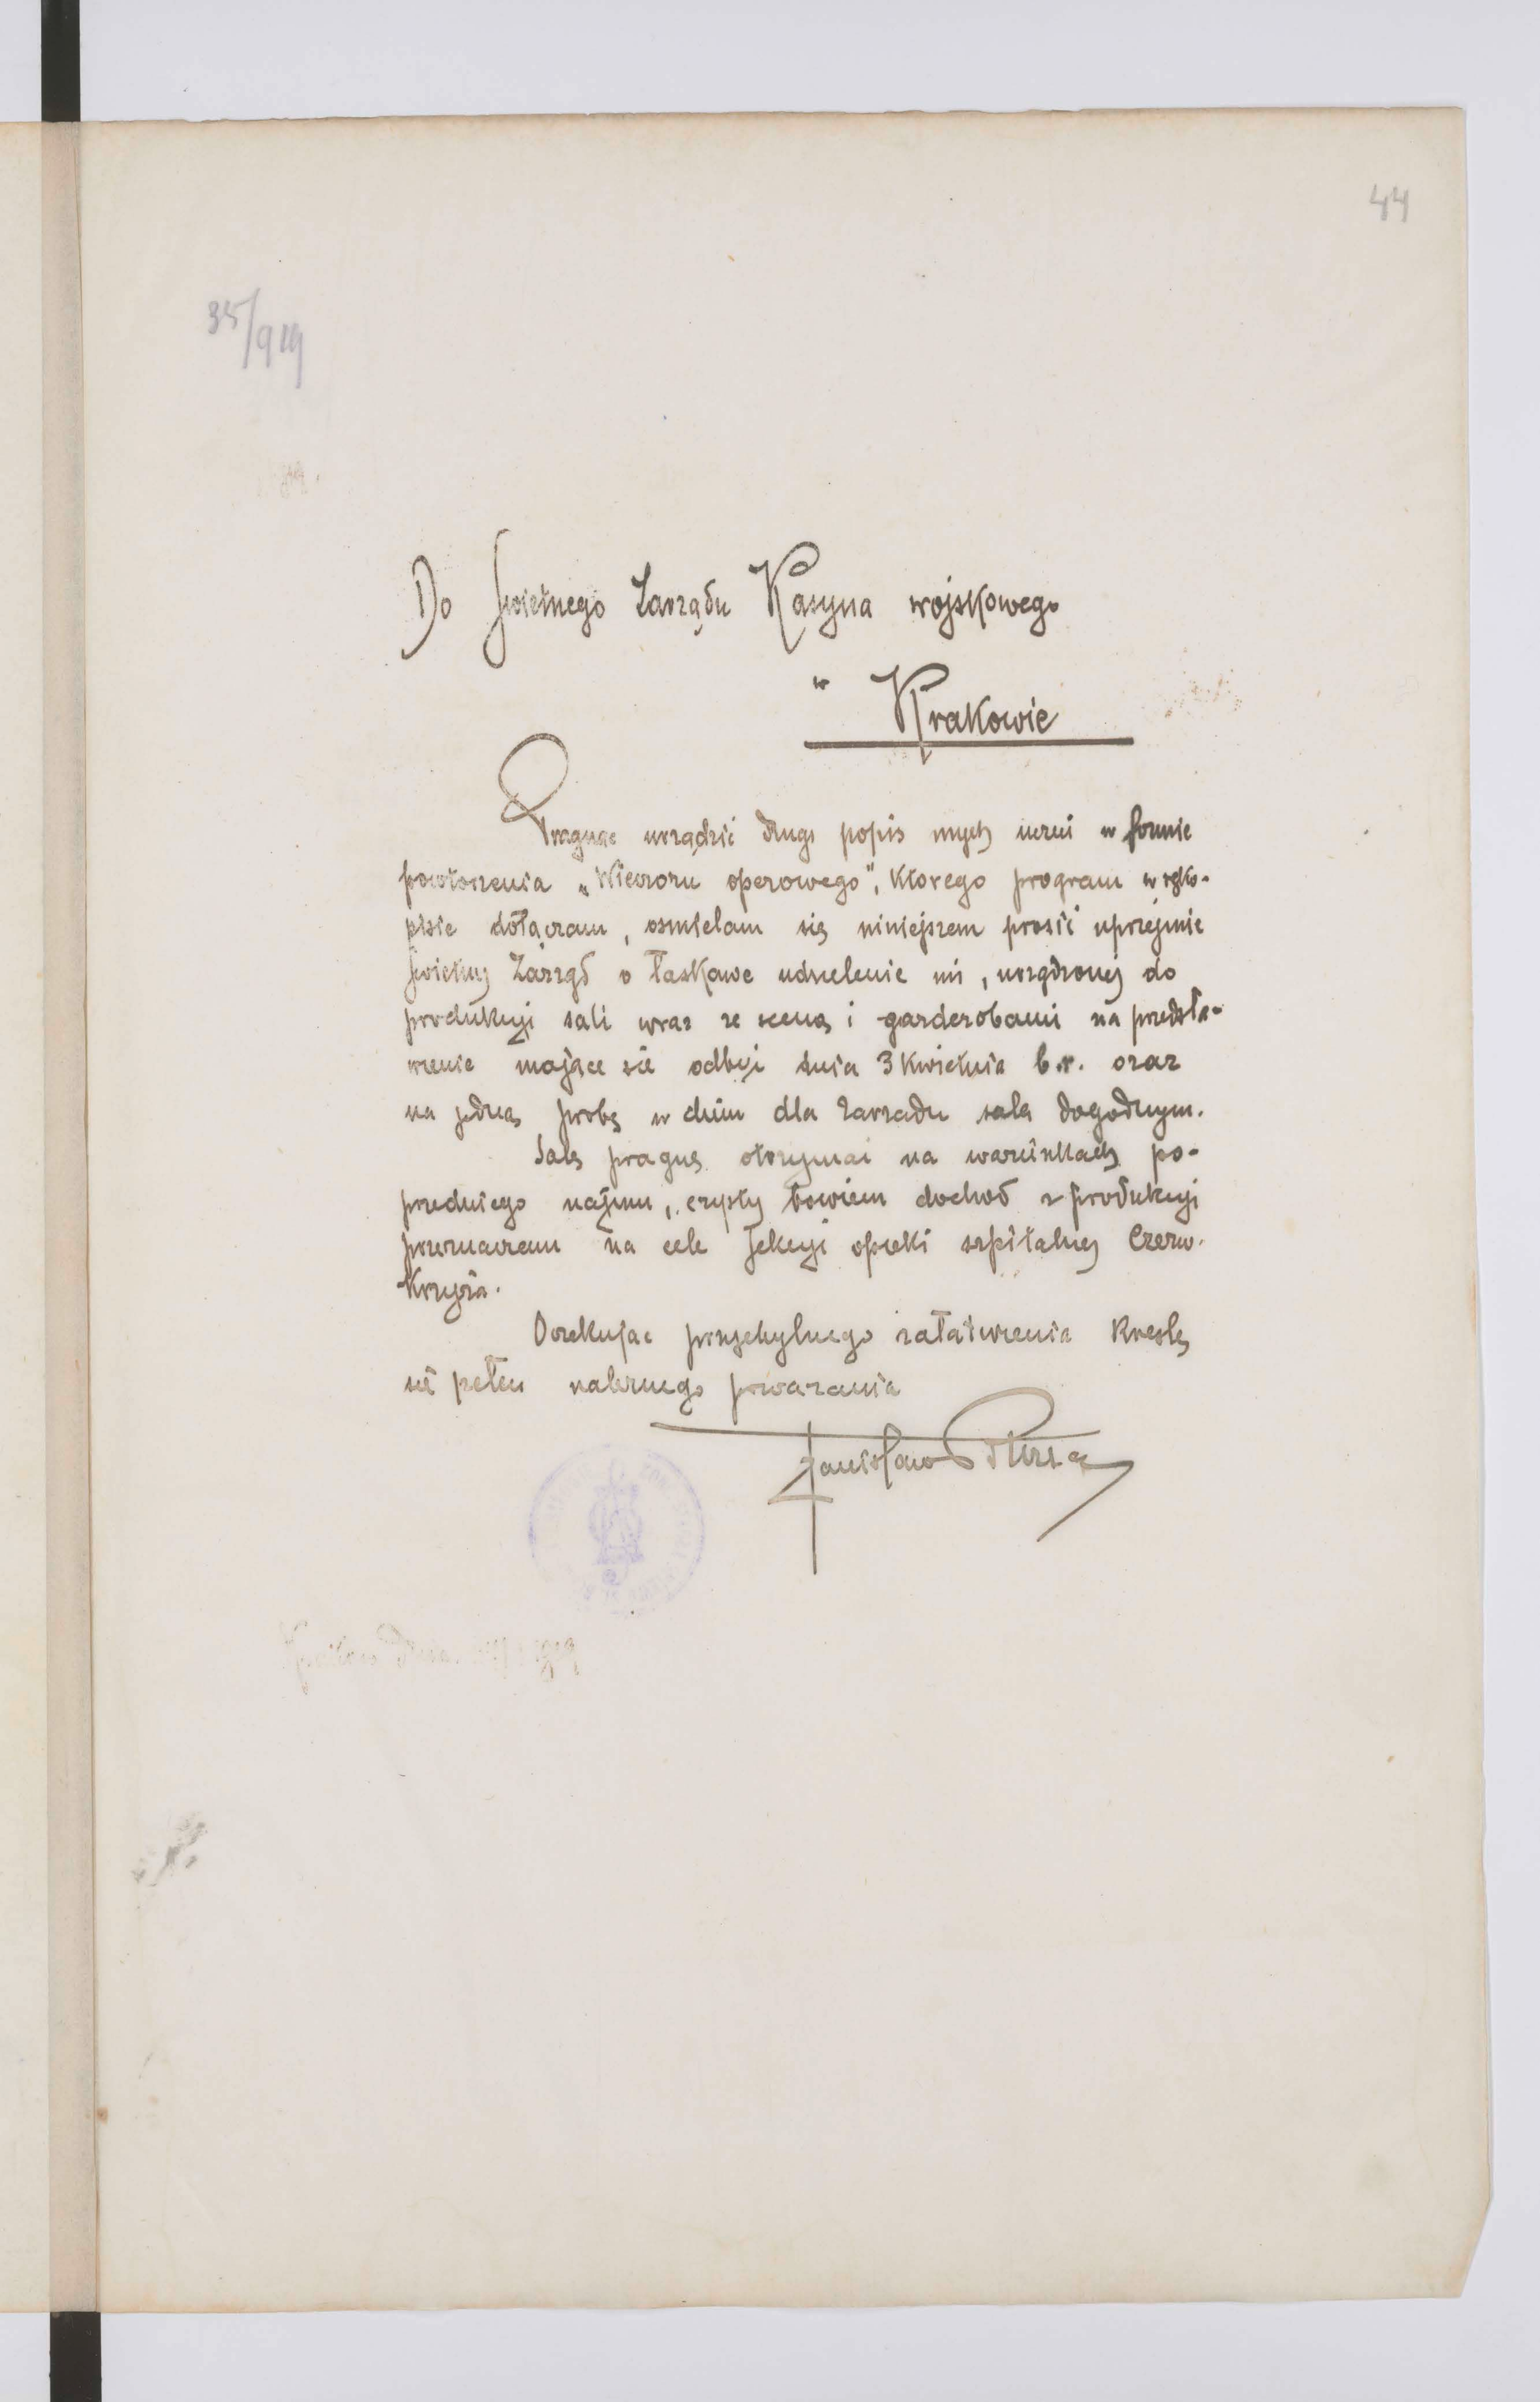 44
35/919
Do Świetnego Zarządu Kasyna wojskowego
w
Krakowie
Pragnąc urządzić drugi popis mych uczni w formie
powtórzenia „Wieczoru operowego", którego program w ręko-
pisie dołączam, ośmielam się niniejszem prosić uprzejmie
Świetny Zarząd o łaskawe udzielenie mi, urządzonej do
produkcyi sali wraz ze sceną i garderobami na przedsta-
wienie mające się odbyć dnia 3 kwietnia b.r. oraz
na jedną próbę w dniu dla Zarządu sala dogodnym.
Salę pragnę otrzymać na warunkach po-
przedniego najmu, czysty bowiem dochód z produkcyi
przeznaczam na cele Sekcyi opieki szpitalnej Czerw.
Krzyża.
Oczekując przychylnego załatwienia kreślę
się pełen należnego poważania
Stanisław Bursa